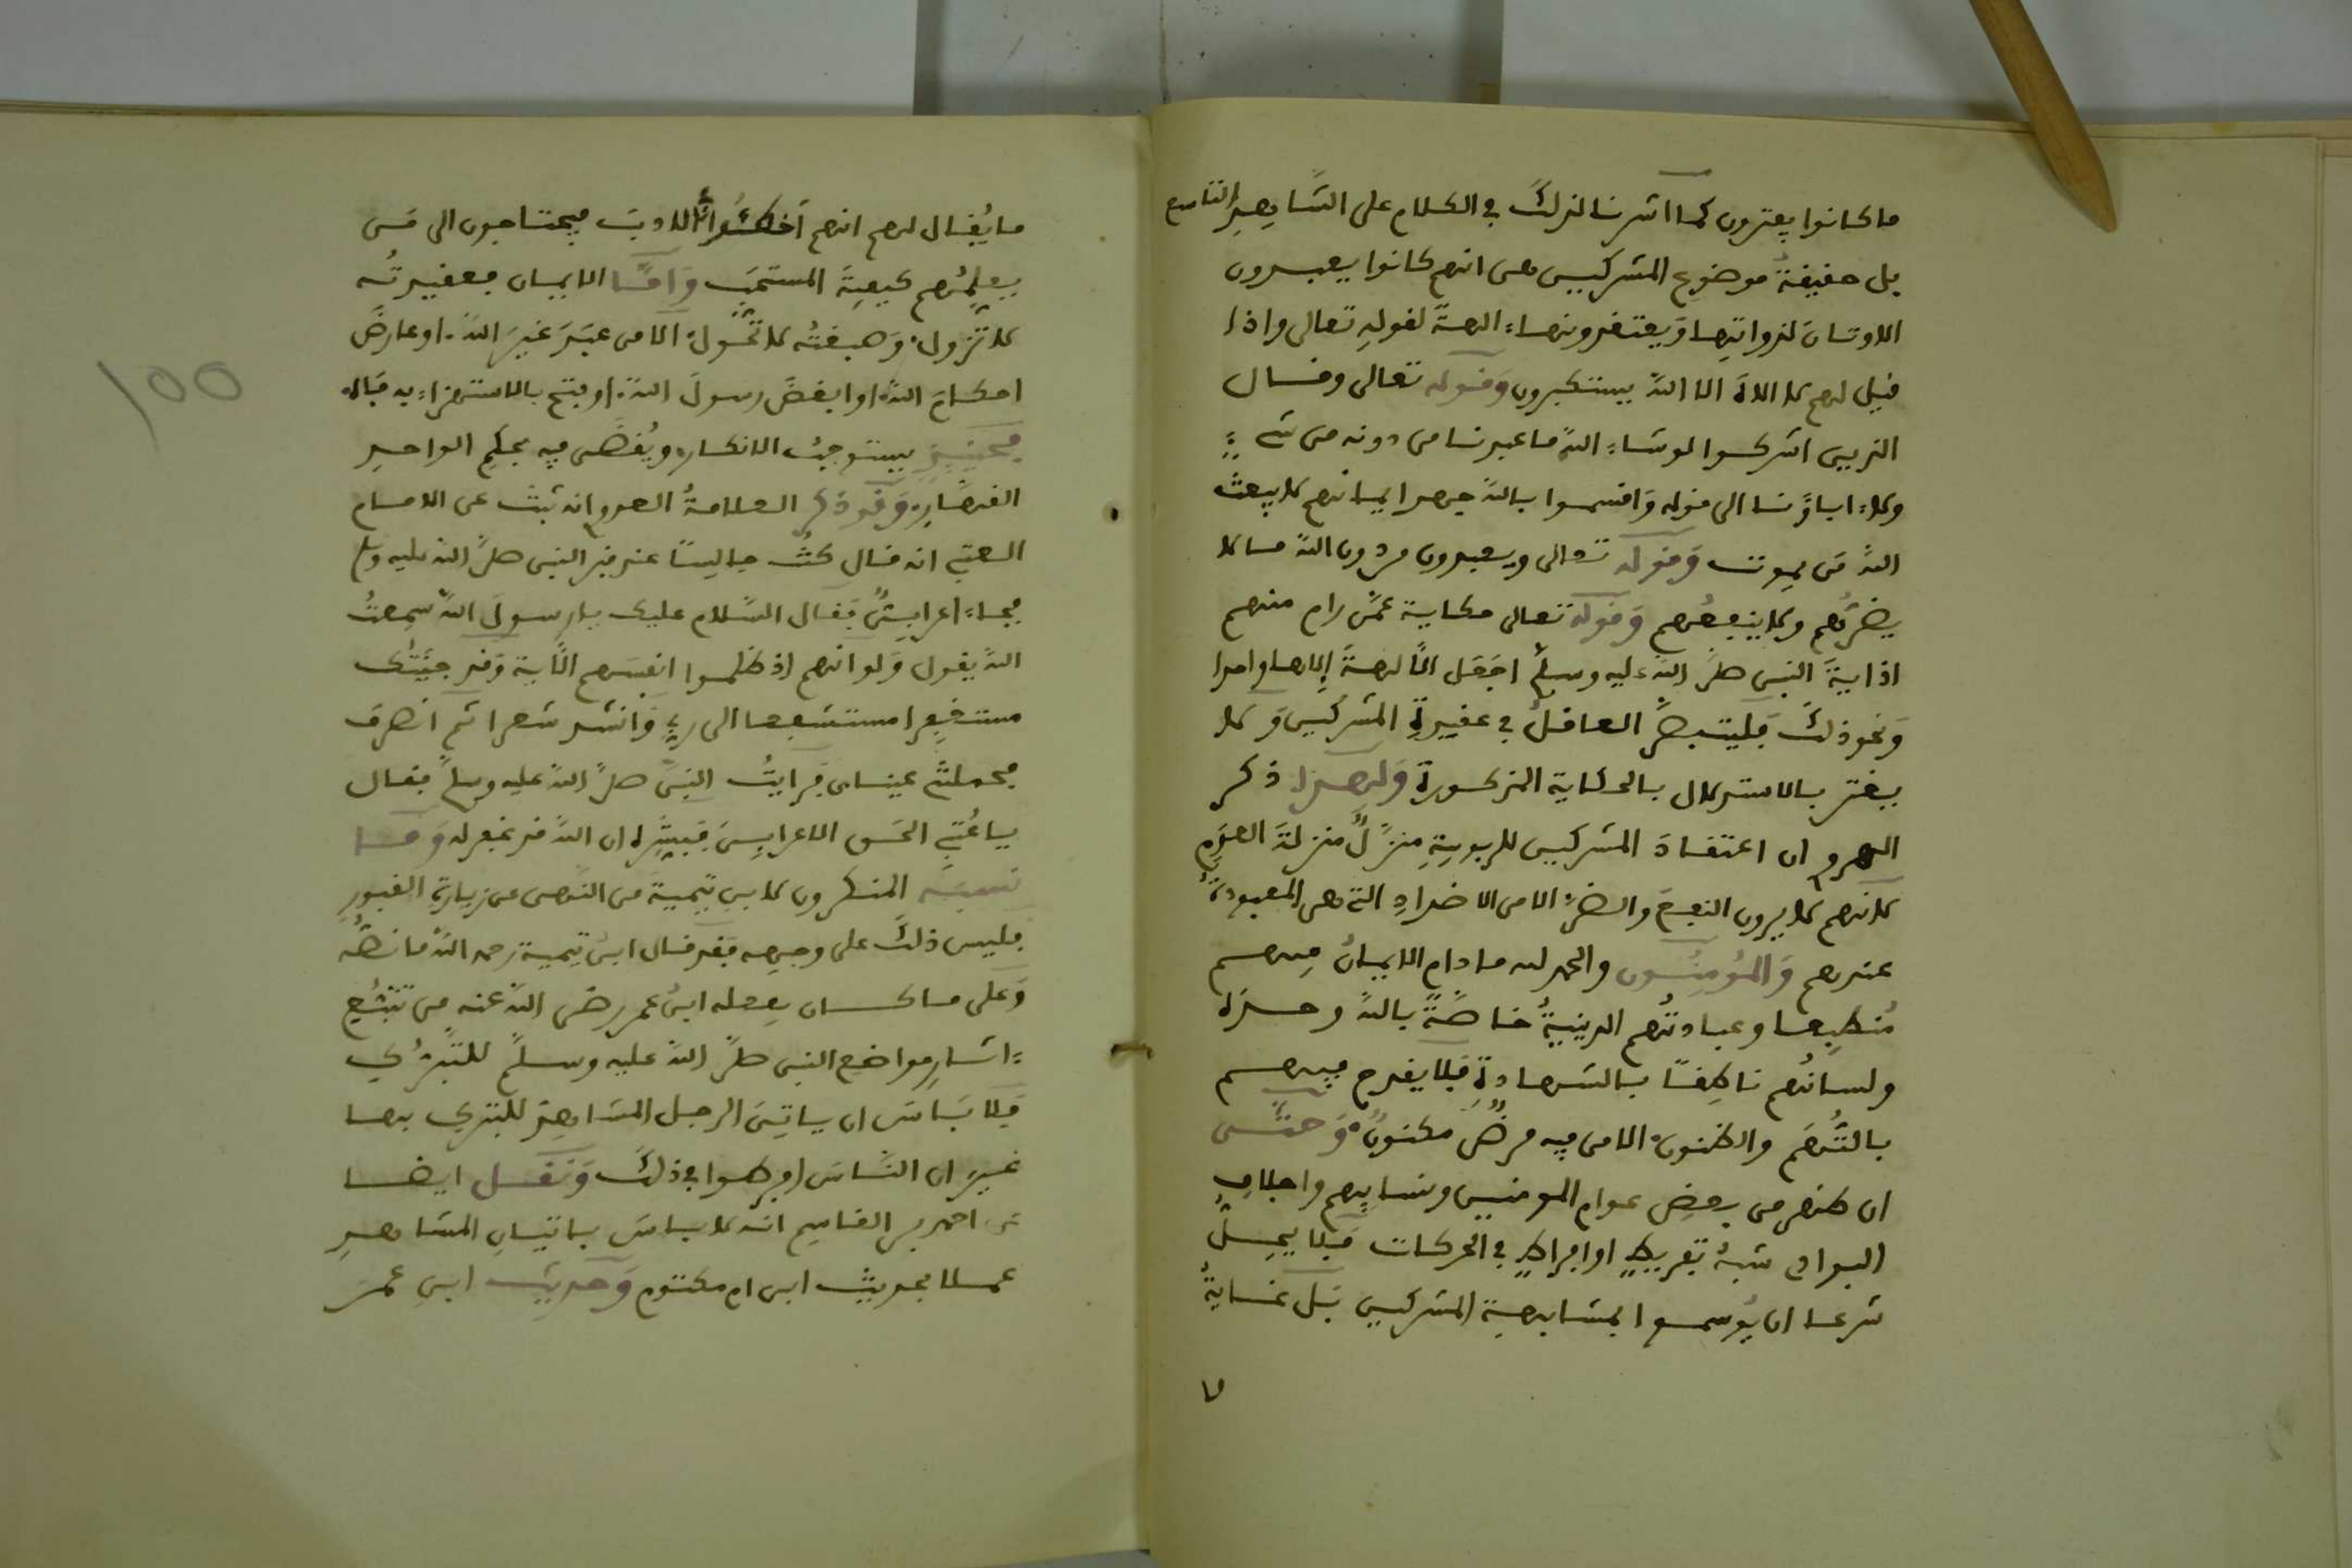 ما كانوا يعترون كما اشرنا لذلك في الكلام على الشاهد التاسع
بل حقيقة موضوع المشركين هي انهم كانوا يعبدون
الاوثان لذواتها ويعتقدونها ءالهة لقوله تعالى واذا
قيل لهم لا الاه الا الله يستكبرون وقوله تعالى وقال
الذين اشركوا لو شاء الله ما عبدنا من دونه من شيء
ولا ءاباؤنا الى قوله واقسموا بالله جهد ايمانهم لا يبعث
الله من يموت وقوله تعالى ويعبدون من دون الله ما لا
يضرهم ولا ينفعهم وقوله تعالى حكاية عمن رام منهم
اذاية النبي صلى الله عليه وسلم اجعل الالهة إلاها واحدا
ونحو ذلك فليتبصر العاقل في عقيدة المشركين ولا
يغتر بالاستدلال بالحكاية المذكورة ولهذا ذكر
ان اعتقاد المشركين للربوبية منزل منزلة العدم
لانهم لا يرون النفع والضر الا من الاضداد التي هي المعبودة
عندهم والمؤمنون والحمد لله ما دام الايمان فيهم
منطبعا وعبادتهم الدينية خاصة بالله وحده
ولسانهم ناطقا بالشهادة فلا يقدح فيهم
بالتهم والظنون الا من فيه مرض مكنون وحتى
ان ظهر من بعض عوام المومنين ونسايهم واجلاف
البوادي شبه تفريط او افراط في الحركات فلا يحل
شرعا ان يوسموا بمشابهة المشركين بل غاية
٧
ما يقال لهم انهم اخطئوا الادب فيحتاجون الى من
يعلمهم كيفية المستحب واما الايمان فعقيدته
لا تزول وصبغته لا تحول الا من عبد غير الله او عارض
احكام الله او ابغض رسول الله او بتح بالاستهزاء به قاله
فحينئذ يستوجب الانكار ويقضى فيه بحكم الواحد
القهار وقد ذكر العلامة انه ثبت عن الامام
العتبي انه قال كنت جالسا عند قبر النبي صلى الله عليه وسلم
فجاء اعرابي فقال السلام عليك يا رسول الله سمعت
الله يقول ولو انهم اذ ظلموا انفسهم الاية وقد جئتك
مستغفرا مستشفعا الى ربي وانشد شعرا ثم انصرف
فحملتني عيناي فرايت النبي صلى الله عليه وسلم فقال
يا عتبي الحق الاعرابي فبشره ان الله قد غفر له وما
نسبه المنكرون لابن تيمية من النهي عن زيارة القبور
فليس ذلك على وجهه فقد قال ابن تيمية رحمه الله ما نصه
وعلى ما كان يفعله ابن عمر رضي الله عنه من تتبع
ءاثار مواضع النبي صلى الله عليه وسلم للتبرك
فلا باس ان ياتي الرجل المشاهد للتبرك بها
غير ان الناس افرطوا في ذلك ونقل ايضا
عن احمد بن القاسم انه لا باس باتيان المشاهد
عملا بحديث ابن ام مكتوم وحديث ابن عمر
100